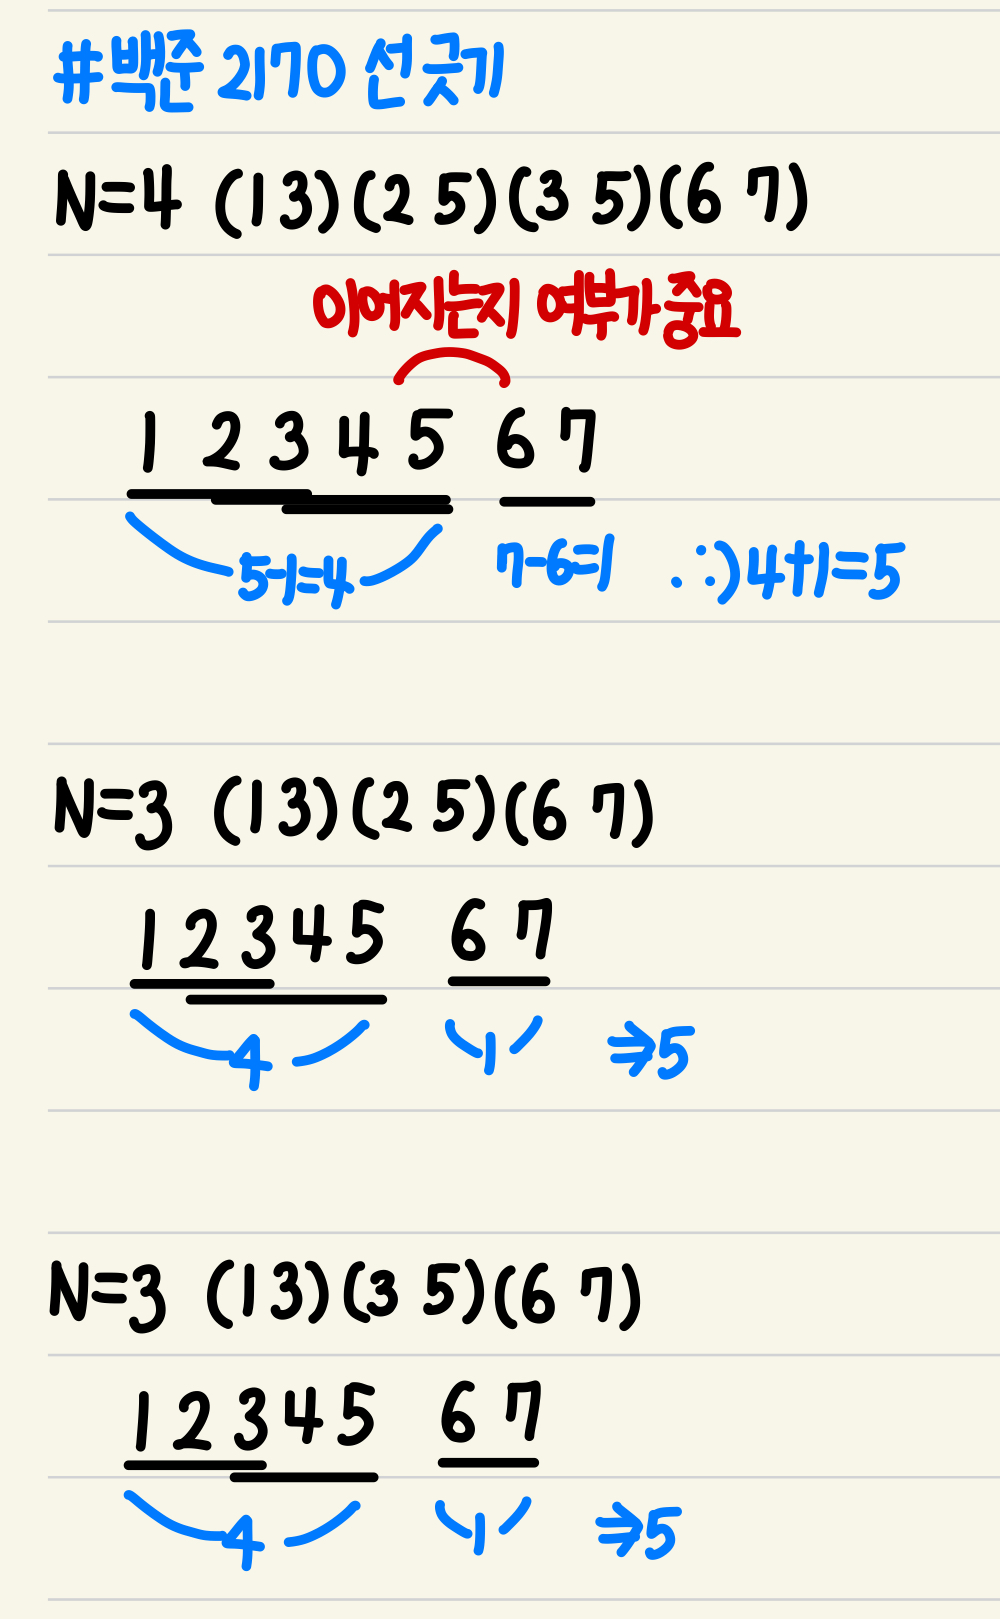 #백준 2170 선 긋기
N=4 (1 3) (2 5) (3 5) (6 7)
이어지는지 여부가 중요
1 2 3 4 5 6 7
5-1=4 7-6=1 ∴) 4+1=5
N=3 (1 3) (2 5) (6 7)
1 2 3 4 5 6 7
4 1 ⇒5
N=3 (1 3) (3 5) (6 7)
1 2 3 4 5 6 7
4 1 ⇒5